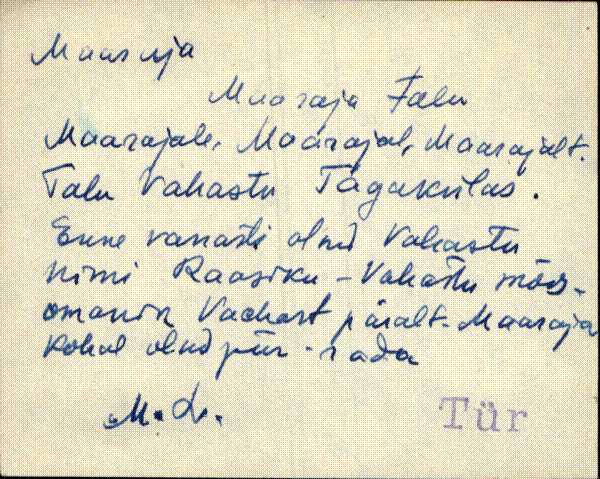 Maaraja
Maaraja Talu
Maarajale, Maarajal, Maarajalt.
Talu Vahastu Tagakülas.
Enne vanasti olnd Vahastu
nimi Raasiku - Vahastu mõis-
omanik Vachast päralt. Maaraja
kohal olnd piir-rada
M. L.
Tür